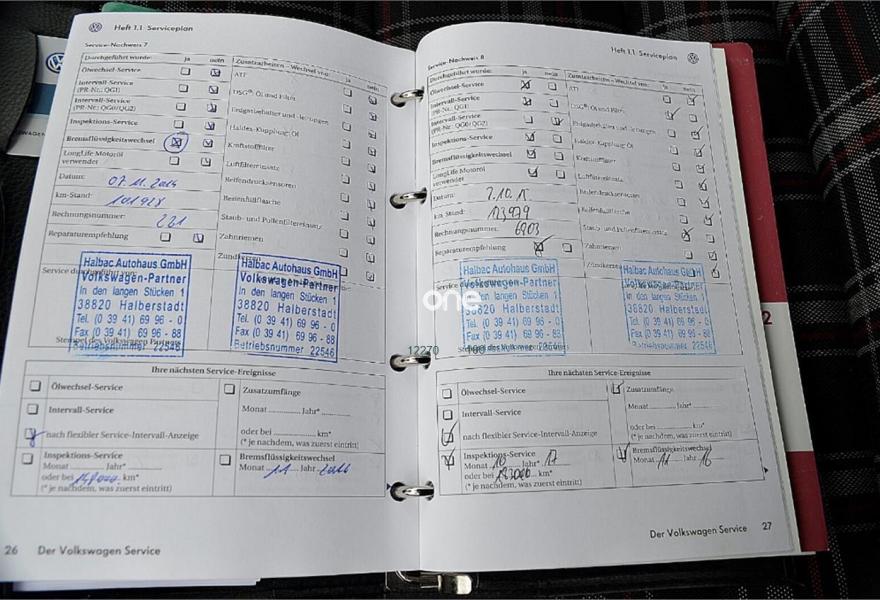 Heft 1.1 Serviceplan
Service-Nachweis 7
Durchgeführt wurde: ja nein
Zusatzarbeiten – Wechsel von: ja nein
Ölwechsel-Service
ATF
Intervall-Service
(PR-Nr.: QG1)
DSG® Öl und Filter
Intervall-Service
(PR-Nr.: QG0/QG2)
Erdgasbehälter und -leitungen
Inspektions-Service
Haldex-Kupplung: Öl
Bremsflüssigkeitswechsel
Kraftstofffilter
LongLife Motoröl
verwendet
Luftfiltereinsatz
Datum: 07.11.2014
Reifendruckensoren
km-Stand: 101928
Reifenfüllflasche
Rechnungsnummer: 221
Staub- und Pollenfiltereinsatz
Reparaturempfehlung
Zahnriemen
Zündkerzen
Service durchgeführt von:
Halbac Autohaus GmbH
Volkswagen-Partner
In den langen Stücken 1
38820 Halberstadt
Tel. (0 39 41) 69 96 - 0
Fax (0 39 41) 69 96 - 88
Betriebsnummer 22546
Halbac Autohaus GmbH
Volkswagen-Partner
In den langen Stücken 1
38820 Halberstadt
Tel. (0 39 41) 69 96 - 0
Fax (0 39 41) 69 96 - 88
Betriebsnummer 22546
Stempel des Volkswagen Partners
Ihre nächsten Service-Ereignisse
Ölwechsel-Service
Zusatzumfänge
Monat Jahr*
Intervall-Service
oder bei km*
(* je nachdem, was zuerst eintritt)
nach flexibler Service-Intervall-Anzeige
Inspektions-Service
Monat Jahr*
oder bei km*
(* je nachdem, was zuerst eintritt)
Bremsflüssigkeitswechsel
Monat 11 Jahr 2016
26 Der Volkswagen Service
Heft 1.1 Serviceplan
Service-Nachweis 8
Durchgeführt wurde: ja nein
Zusatzarbeiten – Wechsel von: ja nein
Ölwechsel-Service
ATF
Intervall-Service
(PR-Nr.: QG1)
DSG® Öl und Filter
Intervall-Service
(PR-Nr.: QG0/QG2)
Erdgasbehälter und -leitungen
Inspektions-Service
Haldex-Kupplung: Öl
Bremsflüssigkeitswechsel
Kraftstofffilter
LongLife Motoröl
verwendet
Luftfiltereinsatz
Datum: 7.10.15
Reifendrucksensoren
km-Stand: 123979
Reifenfüllflasche
Rechnungsnummer: 6903
Staub- und Pollenfiltereinsatz
Reparaturempfehlung
Zahnriemen
Zündkerzen
Halbac Autohaus GmbH
Volkswagen-Partner
In den langen Stücken 1
38820 Halberstadt
Tel. (0 39 41) 69 96 - 0
Fax (0 39 41) 69 96 - 88
Betriebsnummer 22546
Halbac Autohaus GmbH
Volkswagen-Partner
In den langen Stücken 1
38820 Halberstadt
Tel. (0 39 41) 69 96 - 0
Fax (0 39 41) 69 96 - 88
Betriebsnummer 22546
one
12270
100
Ihre nächsten Service-Ereignisse
Ölwechsel-Service
Zusatzumfänge
Monat Jahr*
Intervall-Service
oder bei km*
(* je nachdem, was zuerst eintritt)
nach flexibler Service-Intervall-Anzeige
Inspektions-Service
Monat 10 Jahr* 17
oder bei km*
(* je nachdem, was zuerst eintritt)
Bremsflüssigkeitswechsel
Monat 11 Jahr 16
Der Volkswagen Service 27
2